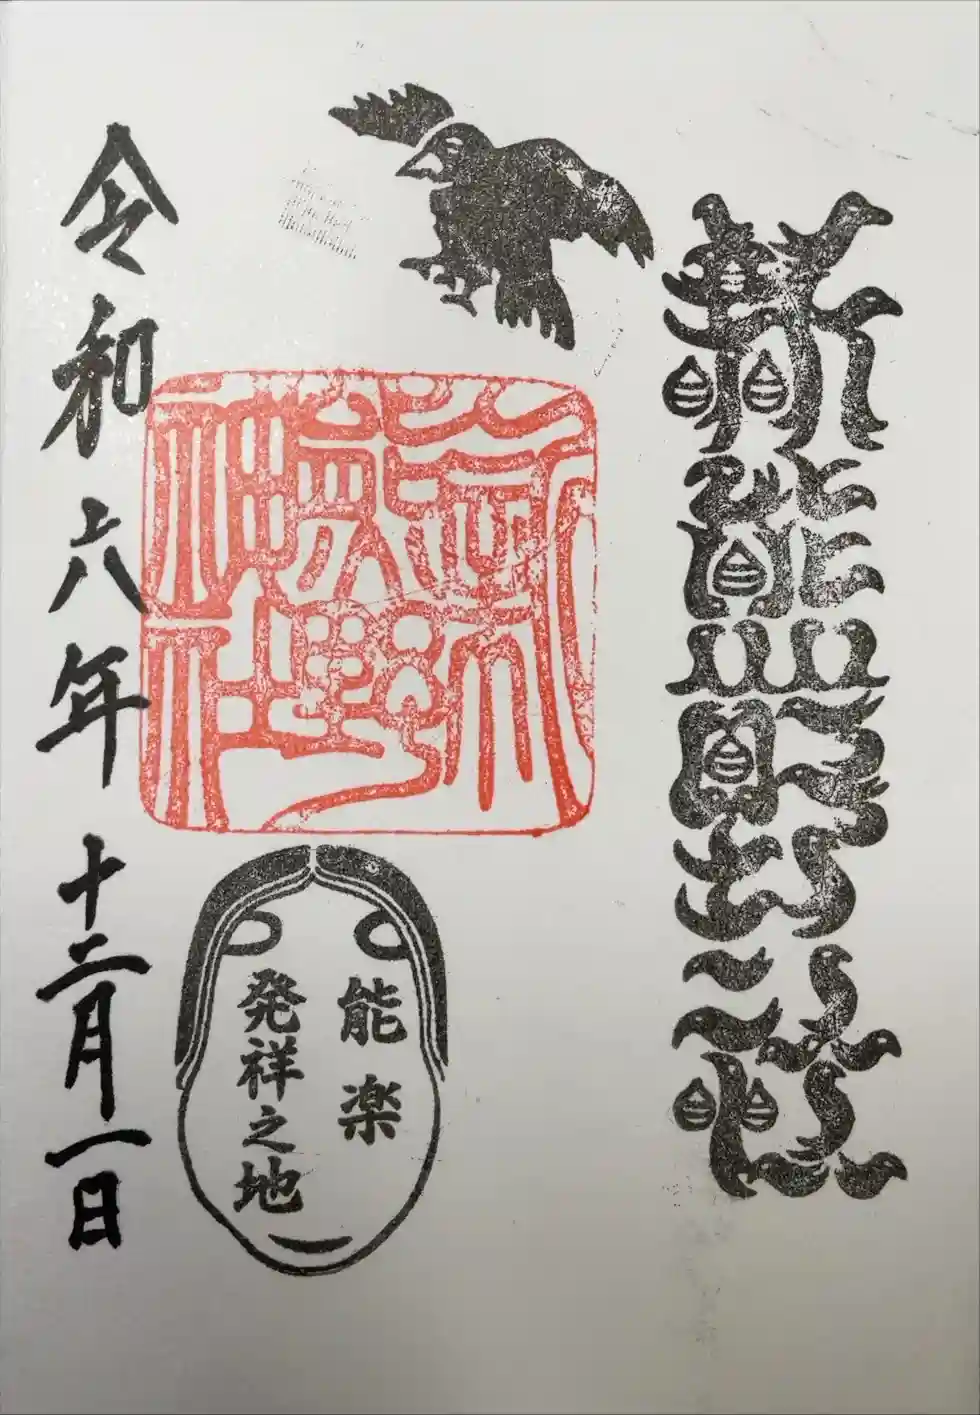 新熊野社
新熊野神社
能楽
発祥之地
令和六年十二月一日